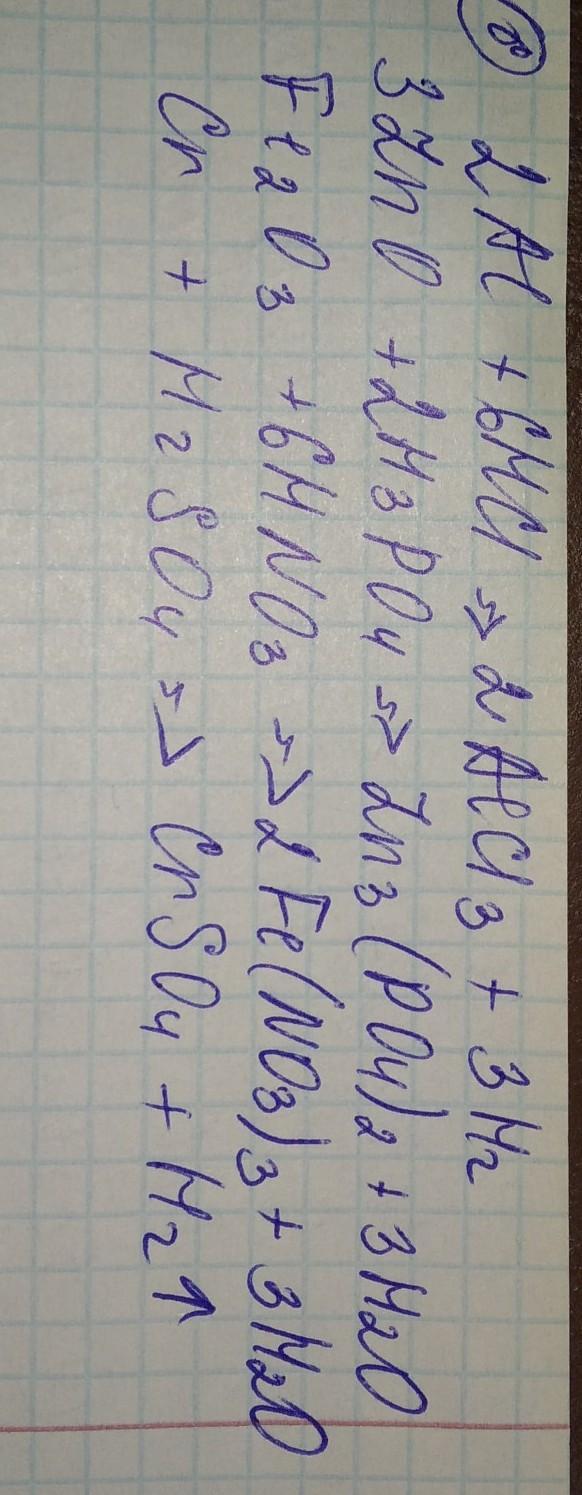 8
2Al + 6HCl → 2AlCl3 + 3H2
3ZnO + 2H3PO4 → Zn3(PO4)2 + 3H2O
Fe2O3 + 6HNO3 → 2Fe(NO3)3 + 3H2O
Cr + H2SO4 → CrSO4 + H2↑